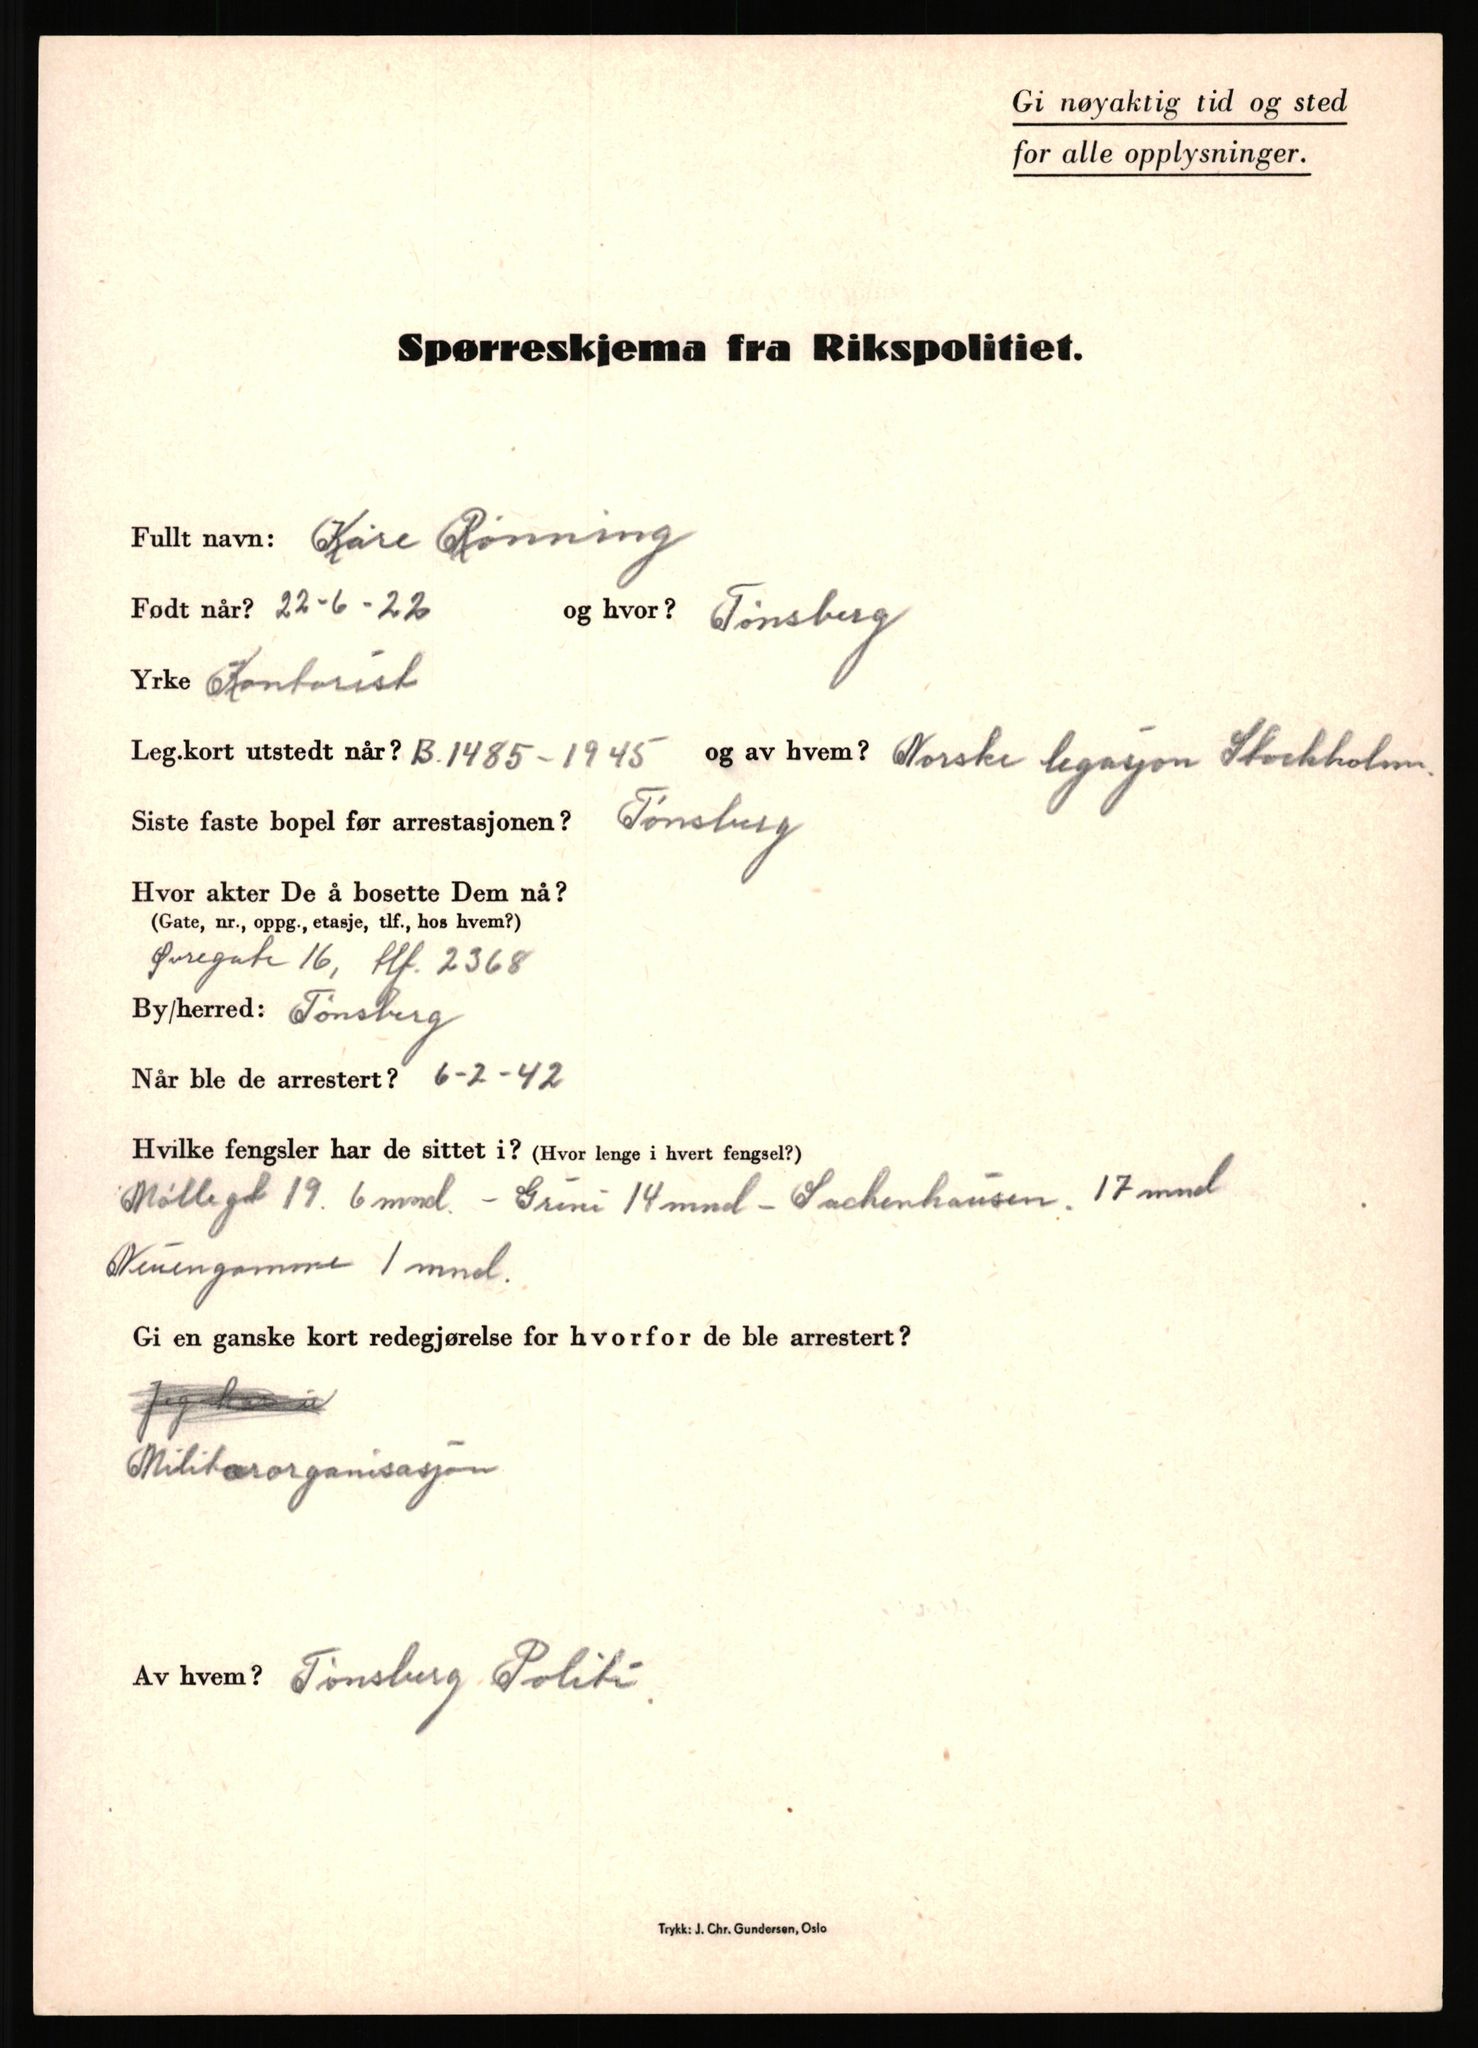 Gi nøyaktig tid og sted
for alle opplysninger.
Spørreskjema fra Rikspolitiet.
Fullt navn: Kåre Rønning
Født når? 22-6-22 og hvor? Tønsberg
Yrke Kontorist
Leg.kort utstedt når? B.1485-1945 og av hvem? Norske legasjon Stockholm.
Siste faste bopel før arrestasjonen? Tønsberg
Hvor akter De å bosette Dem nå?
(Gate, nr., oppg., etasje, tlf., hos hvem?)
Øvregate 16, tlf. 2368
By/herred: Tønsberg
Når ble de arrestert? 6-2-42
Hvilke fengsler har de sittet i? (Hvor lenge i hvert fengsel?)
Møllegt 19. 6 mnd. - Grini 14 mnd - Sachenhausen. 17 mnd
Neuengamme 1 mnd.
Gi en ganske kort redegjørelse for hvorfor de ble arrestert?
Jeg
Militærorganisasjon
Av hvem? Tønsberg Politi.
Trykk: J. Chr. Gundersen, Oslo